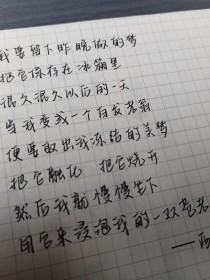 我要留下昨晚做的梦
把它保存在冰箱里
很久很久以后的一天
当我变成一个白发老翁
便要取出我冻结的美梦
把它融化 把它烧开
然后我就慢慢坐下
用它来浸泡我的一双老
——西